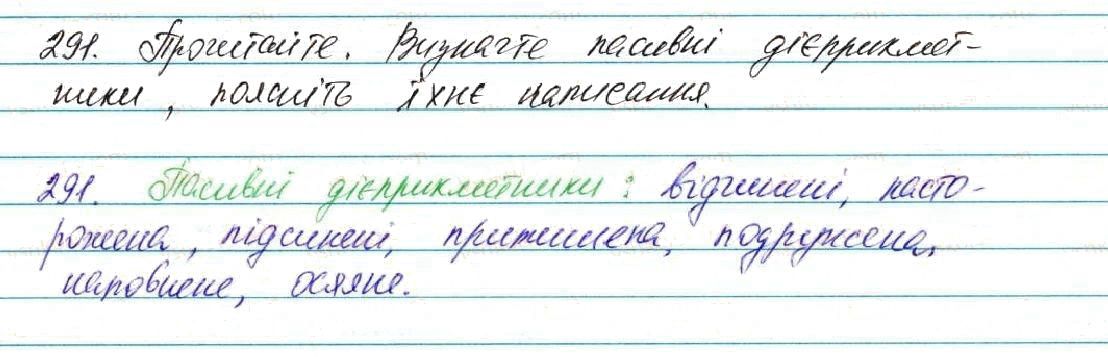 291. Прочитайте. Визначте пасивні дієприкмет-
ники, поясніть їхнє написання.
291. Пасивні дієприкметники: відчинені, насто-
рожена, підсинені, притишена, подружена,
наповнене, осяяне.